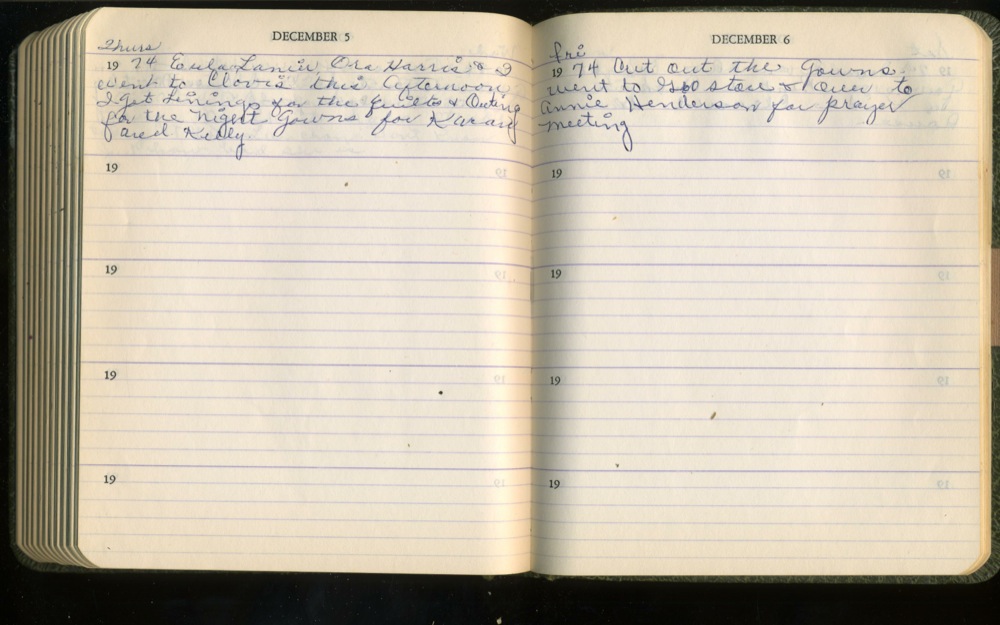 DECEMBER 5
Thurs
19 74 Eula Lanier, Ora Harris & I
went to Clovis this Afternoon
I got Linings for the Quilts & Outing
for the Night Gowns for Karan
and Kelly.
19
19
19
19
DECEMBER 6
Fri
19 74 Cut out the Gowns.
went to store & over to
Annie Henderson for prayer
meeting
19
19
19
19